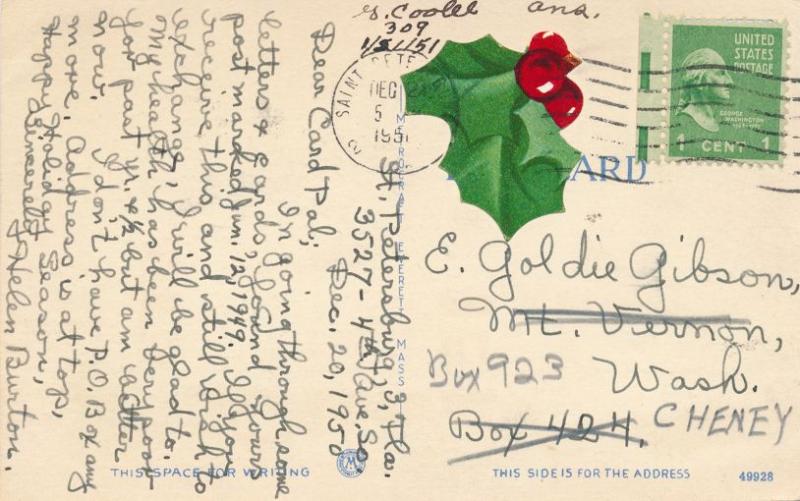 ans.
309
SAINT PETE
DEC
5
195
UNITED
STATES
POSTAGE
GEORGE
WASHINGTON
1 CENT 1
ARD
St. Petersburg, 3, Fla.
3527-4th Ave. So.
Dec. 20, 1950
Dear Card Pal;
In going through some
letters & cards, found yours
postmarked Jun. 12, 1949. If you
receive this and still wish to
exchange, I will be glad to.
My health has been very poor
for past yr. & 1/2 but am better
now. I don't have P.O. Box any
more. Address is at top,
Happy Holiday Season,
Sincerely,
Helen Burton.
EVERETT, MASS
E. Goldie Gibson,
Mt. Vernon,
Box 923 Wash.
Box 424, CHENEY
THIS SPACE FOR WRITING
THIS SIDE IS FOR THE ADDRESS
49928